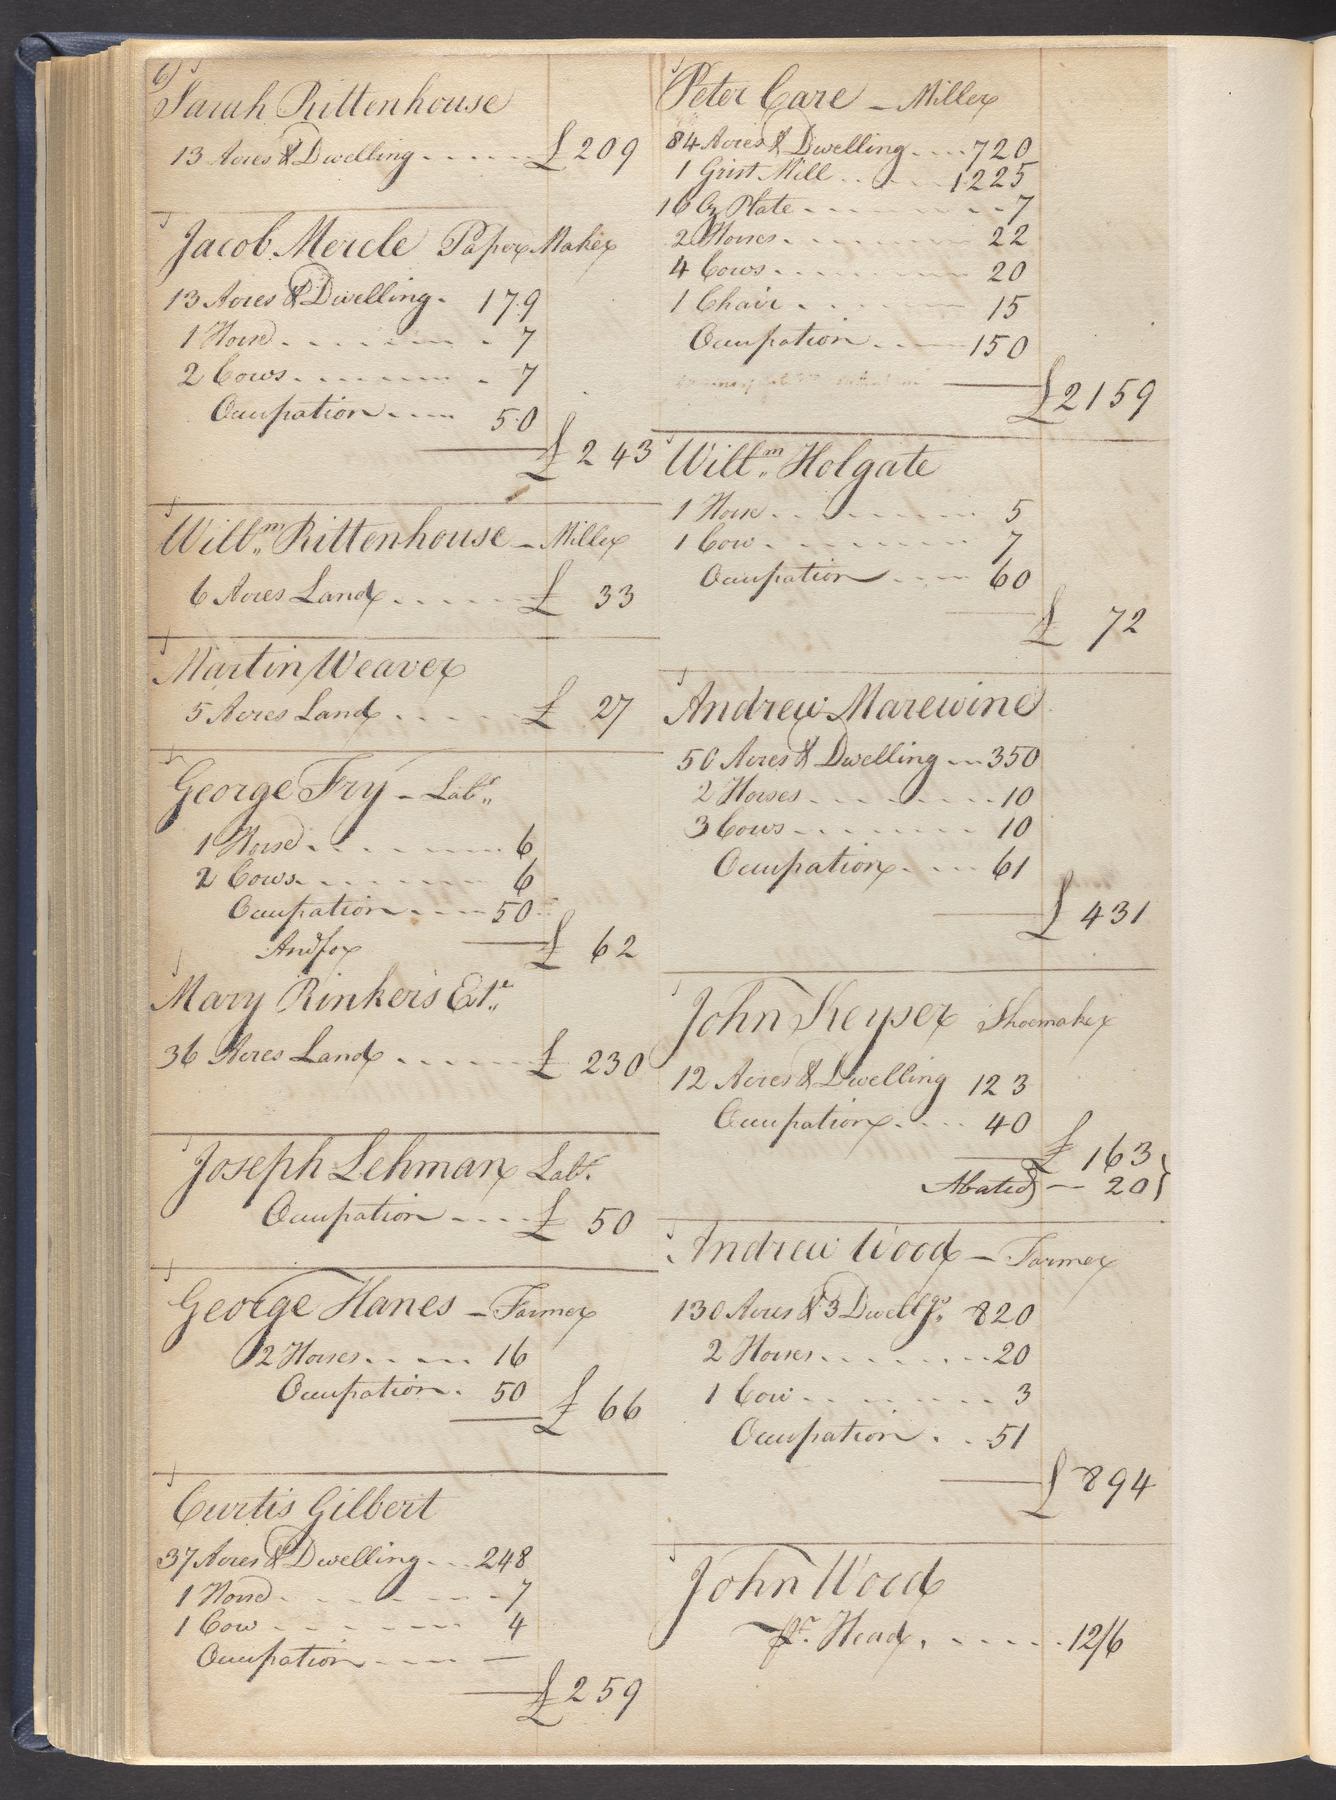 6)
Sarah Rittenhouse
13 Acres & Dwelling . . . . . £ 209
Jacob Mercle Paper Maker
13 Acres & Dwelling . 179
1 Horse . . . . . . 7
2 Cows . . . . . . 7
Occupation . . . . 50
£ 243
Will.m Rittenhouse – Miller
6 Acres Land . . . . . £ 33
Martin Weaver
5 Acres Land . . . . £ 27
George Fry – Labr.
1 Horse . . . . . . 6
2 Cows . . . . . . 6
Occupation . . . . 50
£ 62
And for
Mary Rinker's Este.
36 Acres Land . . . . . £ 230
Joseph Lehman Labr.
Occupation . . . . £ 50
George Hanes – Farmer
2 Horses . . . . . 16
Occupation . 50
£ 66
Curtis Gilbert
37 Acres & Dwelling . . . 248
1 Horse . . . . . . 7
1 Cow . . . . . . 4
Occupation . . . . —
£ 259
Peter Care – Miller
84 Acres & Dwelling . . . 720
1 Grist Mill . . . . . 1225
16 Oz Plate . . . . . . 7
2 Horses . . . . . . 22
4 Cows . . . . . . 20
1 Chair . . . . . . 15
Occupation . . . . 150
£ 2159
Will.m Holgate
1 Horse . . . . . . 5
1 Cow . . . . . . 7
Occupation . . . . 60
£ 72
Andrew Marewine
50 Acres & Dwelling . . . 350
2 Horses . . . . . . 10
3 Cows . . . . . . 10
Occupation . . . . 61
£ 431
John Keyser Shoemaker
12 Acres & Dwelling 123
Occupation . . . . 40
£ 163
Abated — 20
Andrew Wood – Farmer
130 Acres & 3 Dwellgs. 820
2 Horses . . . . . . 20
1 Cow . . . . . . 3
Occupation . . . 51
£ 894
John Wood
Pr. Head . . . . . . 12/6